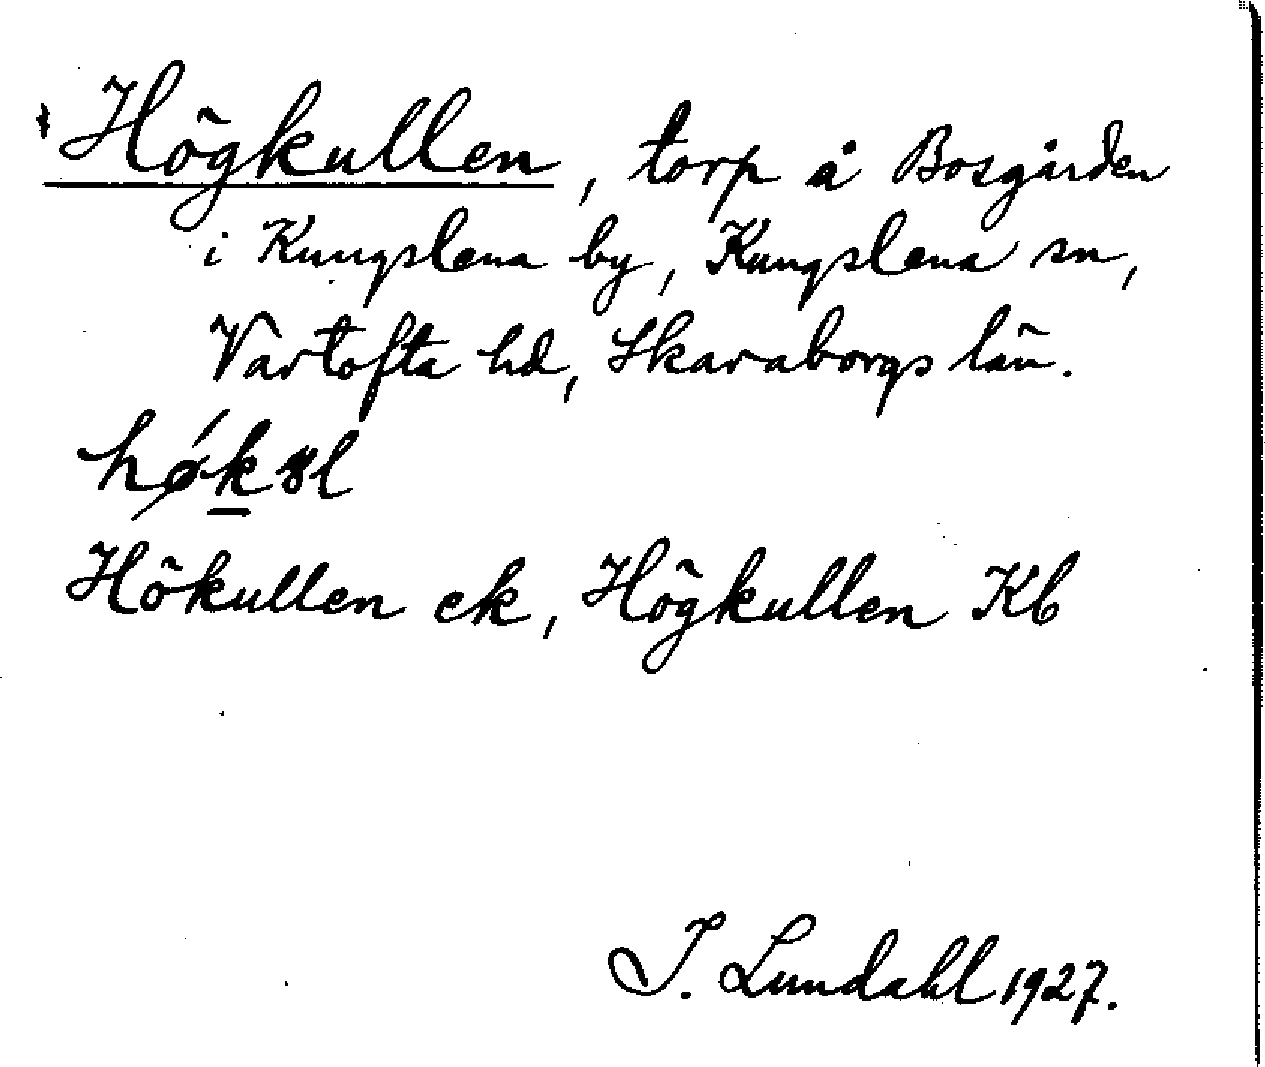 Högkullen, torp å Bosgården
i Kungslena by, Kungslena sn,
Vartofta hd, Skaraborgs län.
Hökullen ek, Högkullen Kb
I. Lundahl 1927.